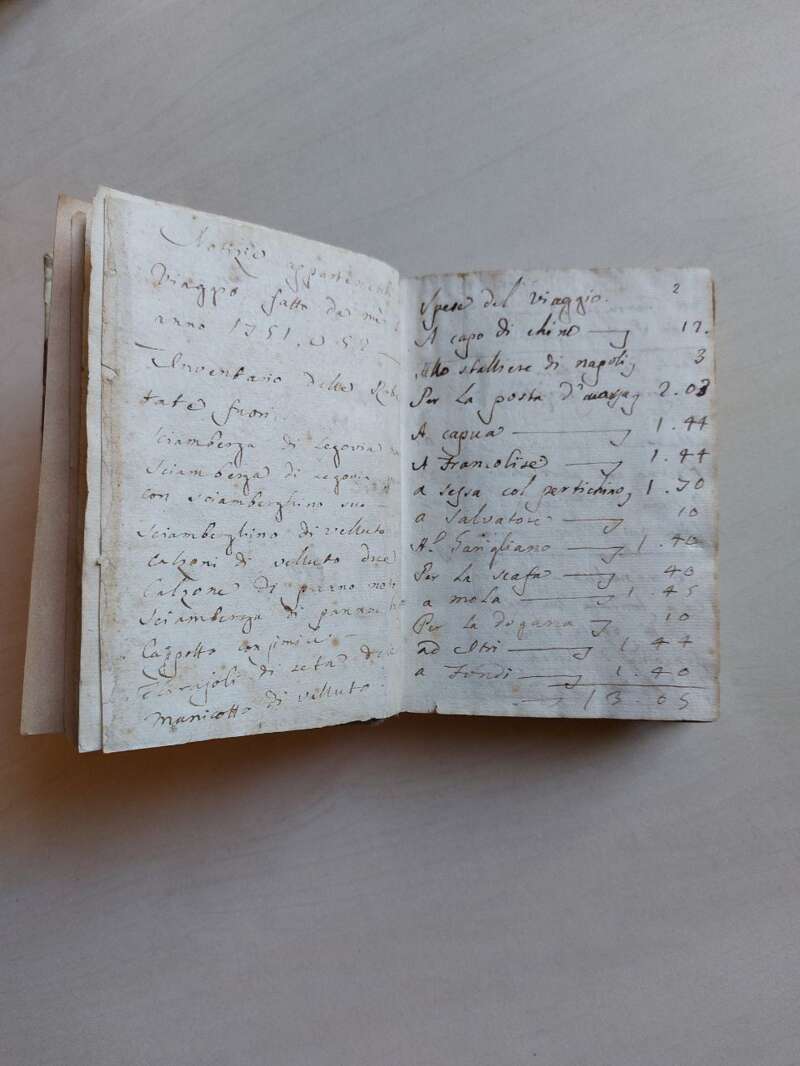 Notizie appartenenti
Viaggio fatto da me
anno 1751. e 52
Inventario delle Robbe
tate fuori.
Sciamberga di Segovia
Sciamberga di Segovia
con sciamberghino suo
Sciamberghino di velluto
Calzoni di velluto due
Calzone di panno
Sciamberga di panno
Cappotto
di seta
Manicotto di velluto.
2
Spese del Viaggio.
A capo di chino 12.
Allo stalliere di napoli 3
Per La posta d' 2.03
A capua 1.44
A Francolise 1.44
a sessa col pertichino 1.70
a Salvatore 10
Al Garigliano 1.40
Per La scafa 40
a mola 1.45
Per La dogana 10
ad Itri 1.44
a Fondi 1.40
13 05